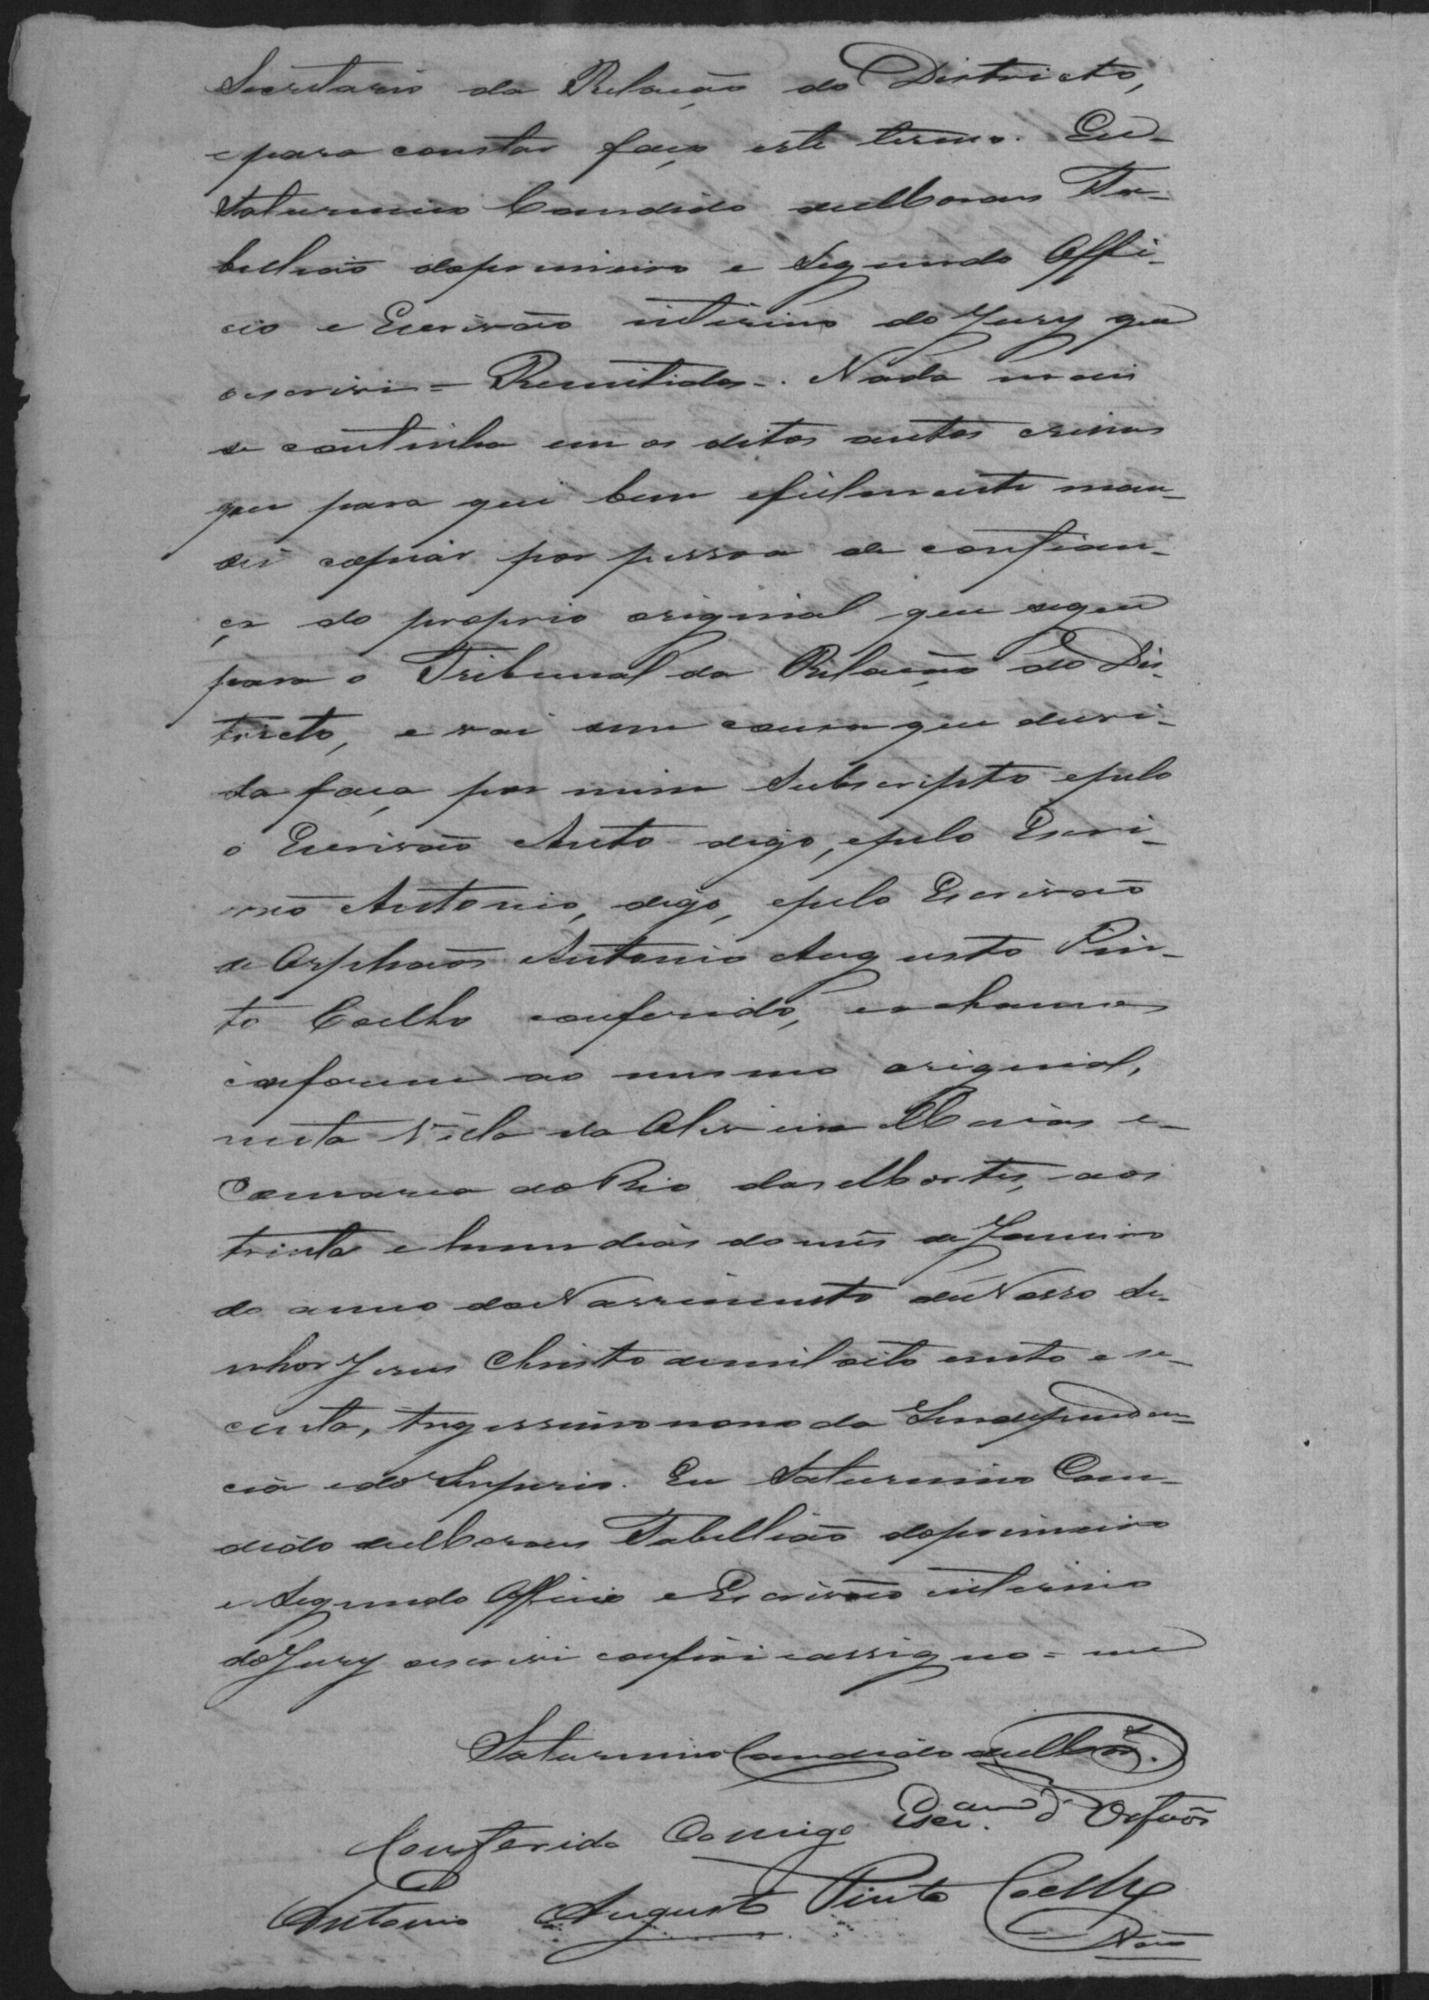 Secretario da Relação do Districto,
e para constar faço este termo. Eu
Saturnino Candido de Moraes Ta-
bellião do primeiro e Segundo Offi-
cio e Escrivão interino do Jury que
o escrivi = Remitidos =. Nada mais
se continha em os ditos autos crimes
que para qui bem e fielmente man-
dei copiar por pessoa de confian-
ça do proprio original que segue
para o Tribunal da Relação do Dis-
tricto, e vai sem cousa que duvi-
da faça por mim Subscripto e pelo
o Escrivão Anto digo, e pelo Escri-
vão Antonio, digo, e pelo Escrivão
de Orphãos Antonio Augusto Pin-
to Coelho conferido, e achamos
conforme ao mesmo original,
nesta Villa da Oliveira Minas e
Comarca do Rio das Mortes, aos
trinta e hum dias do mês de Janeiro
do anno do Nascimento de Nosso Se-
nhor Jesus Christo de mil oito cento e se-
centa, trigessimo nono da Independen-
cia e do Imperio. Eu Saturnino Can-
dido de Moraes Tabellião do primeiro
e Segundo Officio e Escrivão interino
do Jury o escrivi conferi e assigno = me
Saturnino Candido de Mor.s
Conferido Comigo Escr.am d' Orfaõs
Antonio Augusto Pinto Coelho